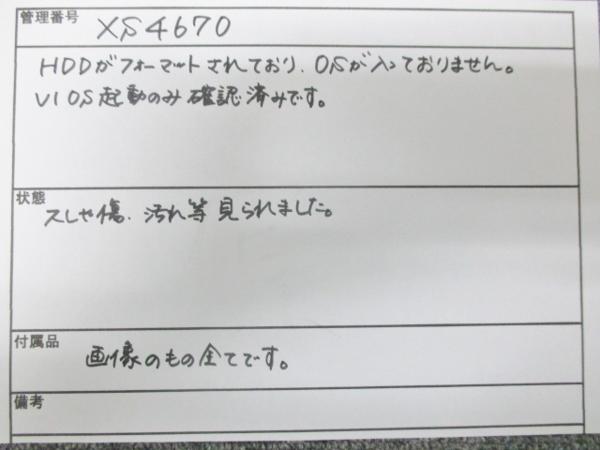 管理番号 XS4670
HDDがフォーマットされており、OSが入っておりません。
VIOS起動のみ確認済みです。
状態
スレや傷、汚れ等見られました。
付属品
画像のもの全てです。
備考